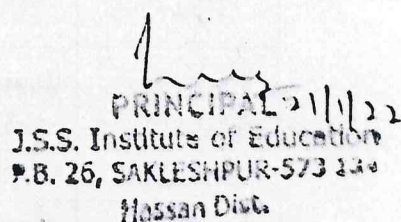 PRINCIPAL 21/1/22
J.S.S. Institute of Education
P.B. 26, SAKLESHPUR-573 134
Hassan Dist.